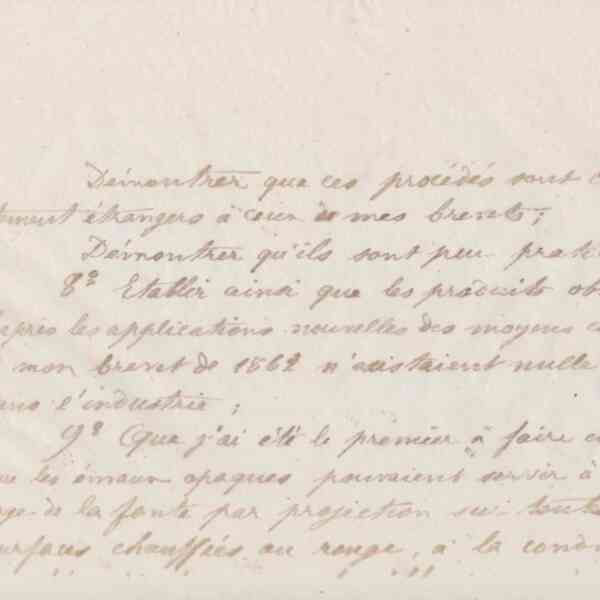 Démontrer que ces procédés sont c
tement étrangers à ceux de mes brevets;
Démontrer qu'ils sont peu prati
8° Etablir ainsi que les produits ob
après les applications nouvelles des moyens c
mon brevet de 1862 n'existaient nulle
ans l'industrie;
9° Que j'ai été le premier à faire c
ue les émaux opaques pouvaient servir à
age de la fonte par projection sur toute
urfaces chauffées au rouge, à la cond